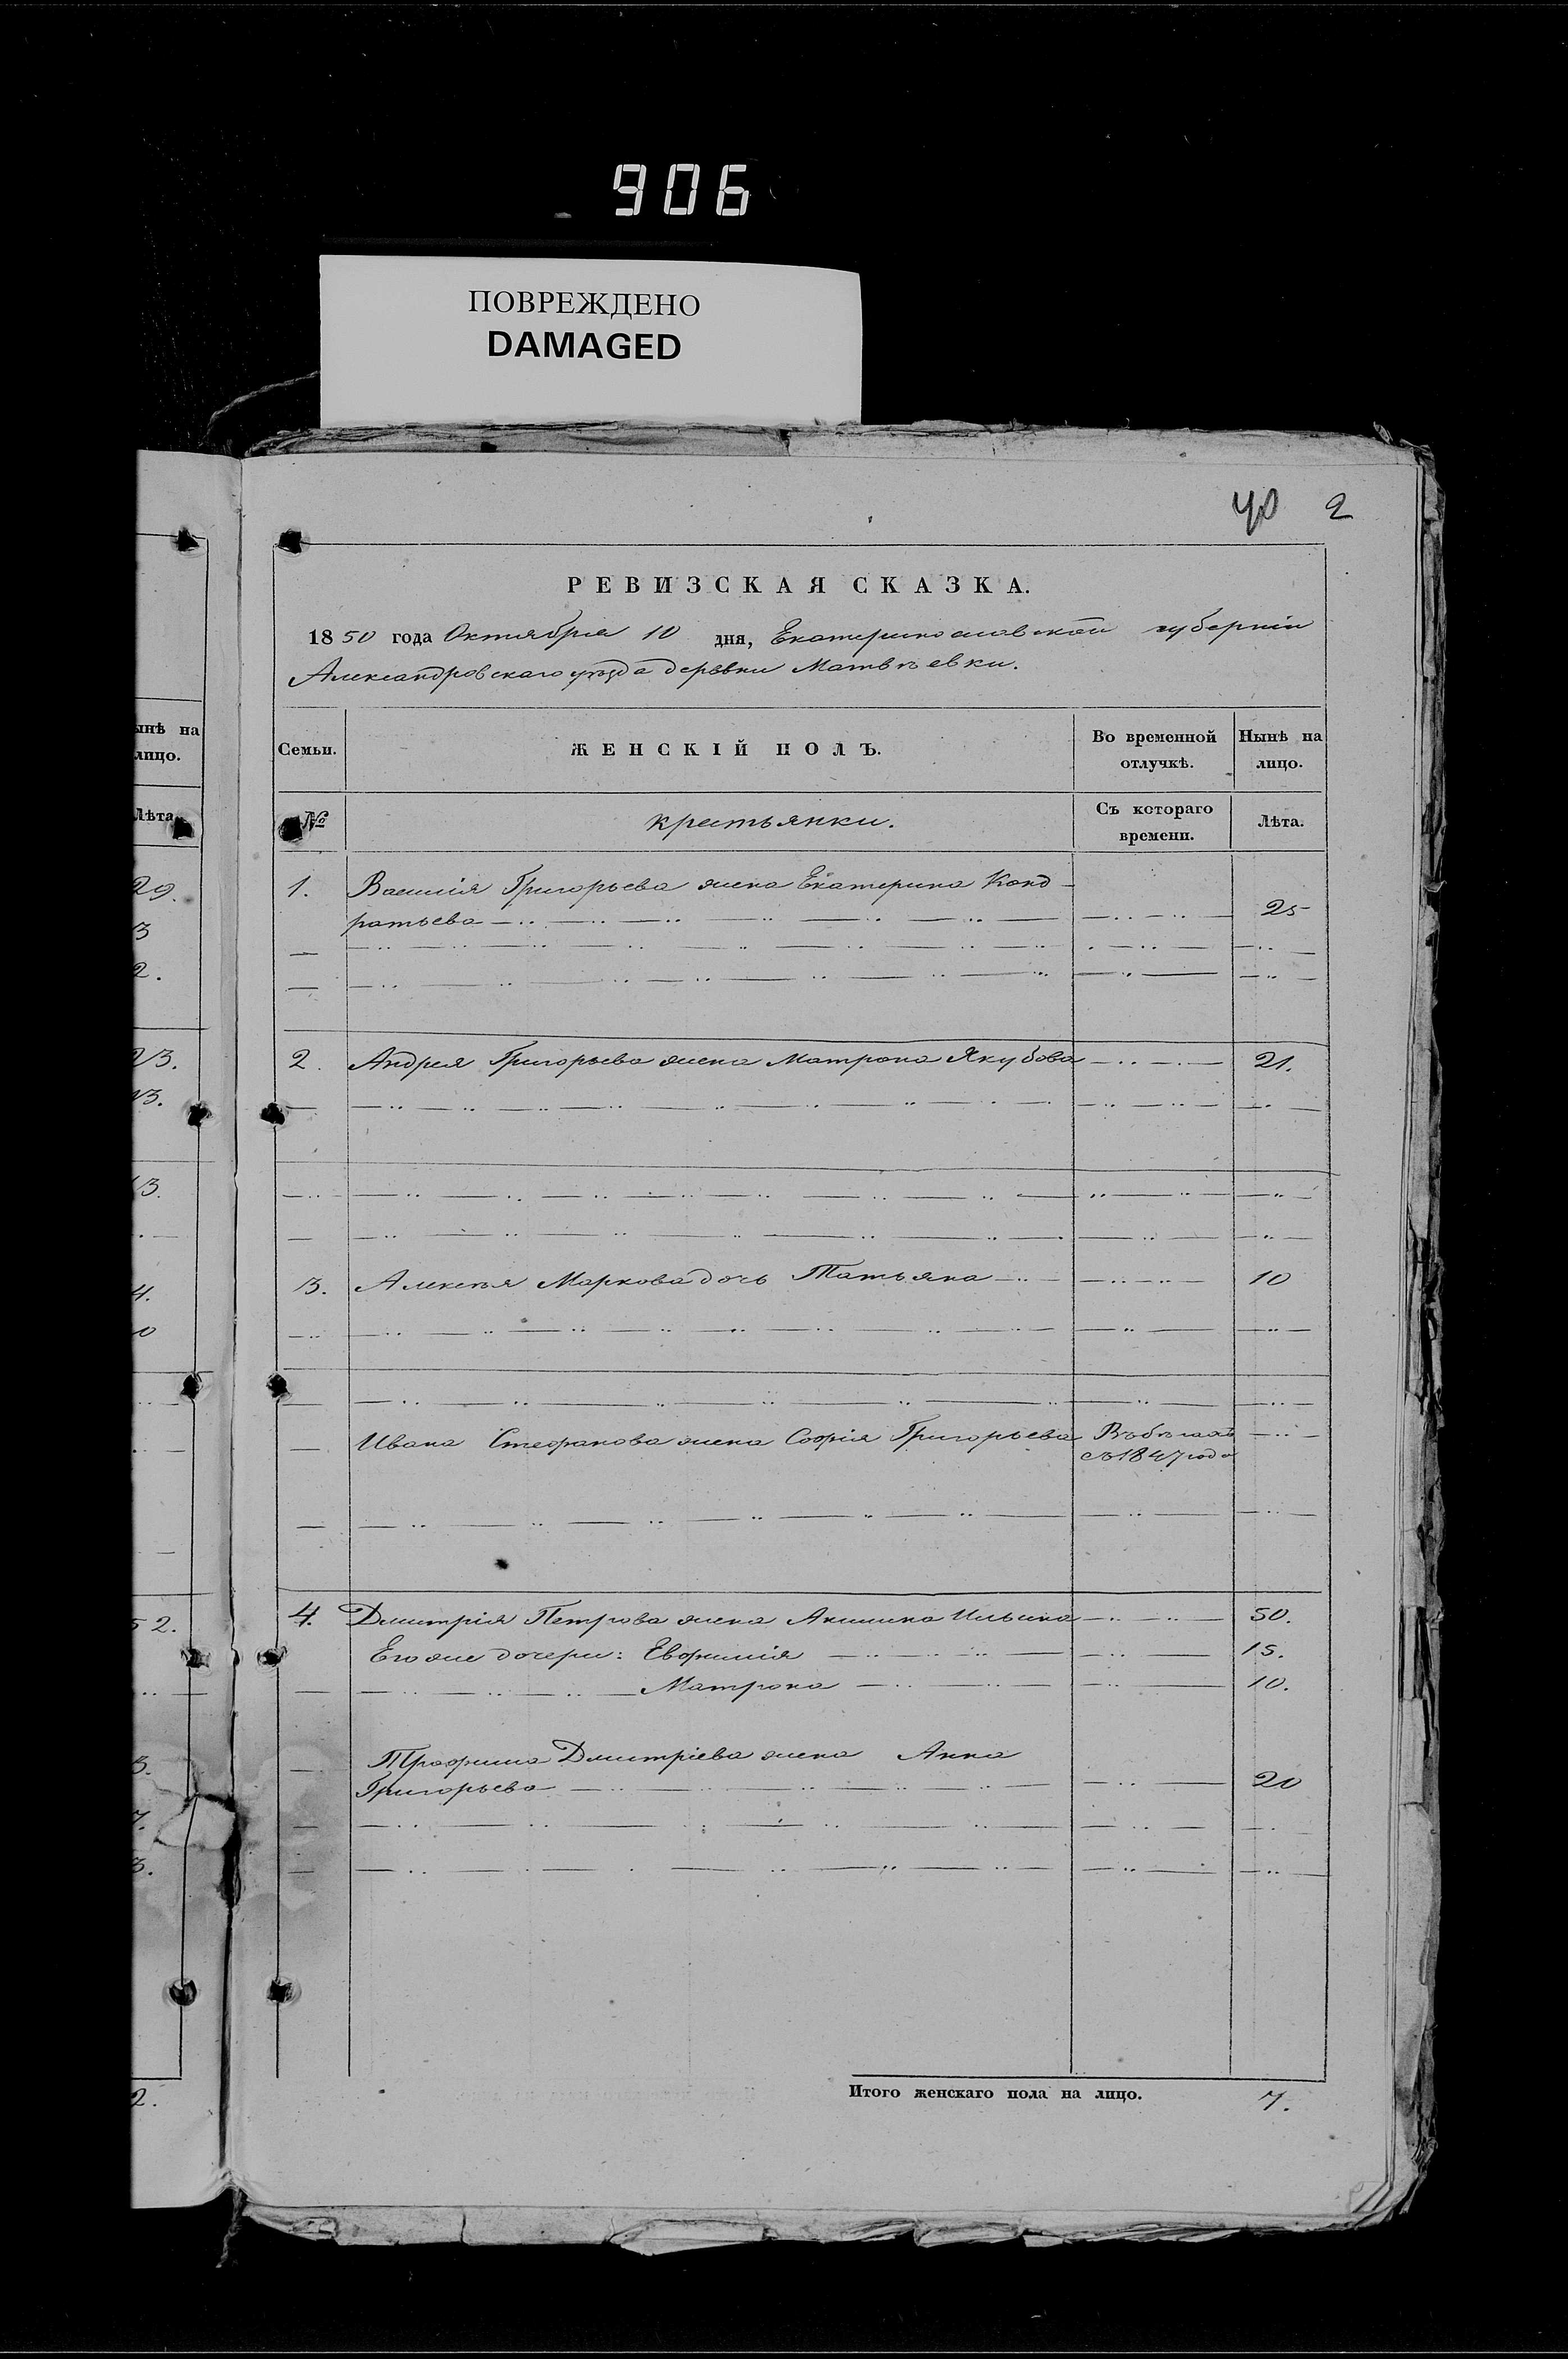 906
ПОВРЕЖДЕНО
DAMAGED
40 2
РЕВИЗСКАЯ СКАЗКА.
1850 года Октября 10 дня, Екатеринославской губерніи
Александровскаго уѣзда деревни Матвѣевки.
Семьи. ЖЕНСКІЙ ПОЛЪ. Во временной отлучкѣ. Нынѣ на лицо.
№ Крестьянки. Съ котораго времени. Лѣта.
1. Василія Григорьева жена Екатерина Конд-
ратьева 25
2. Андрея Григорьева жена Матрона Якубова 21.
3. Алексѣя Маркова дочь Татьяна 10
Ивана Стефанова жена Софія Григорьева Въ бѣгахъ
съ 1847 года
4. Дмитрія Петрова жена Акилина Ильина 50.
Его же дочери: Евфимія 15.
Матрона 10.
Трофима Дмитріева жена Анна
Григорьева 20
Итого женскаго пола на лицо. 7.
ынѣ на
лицо.
Лѣта
29.
3
2.
23.
13.
13.
4.
0
52.
3.
7.
3.
2.